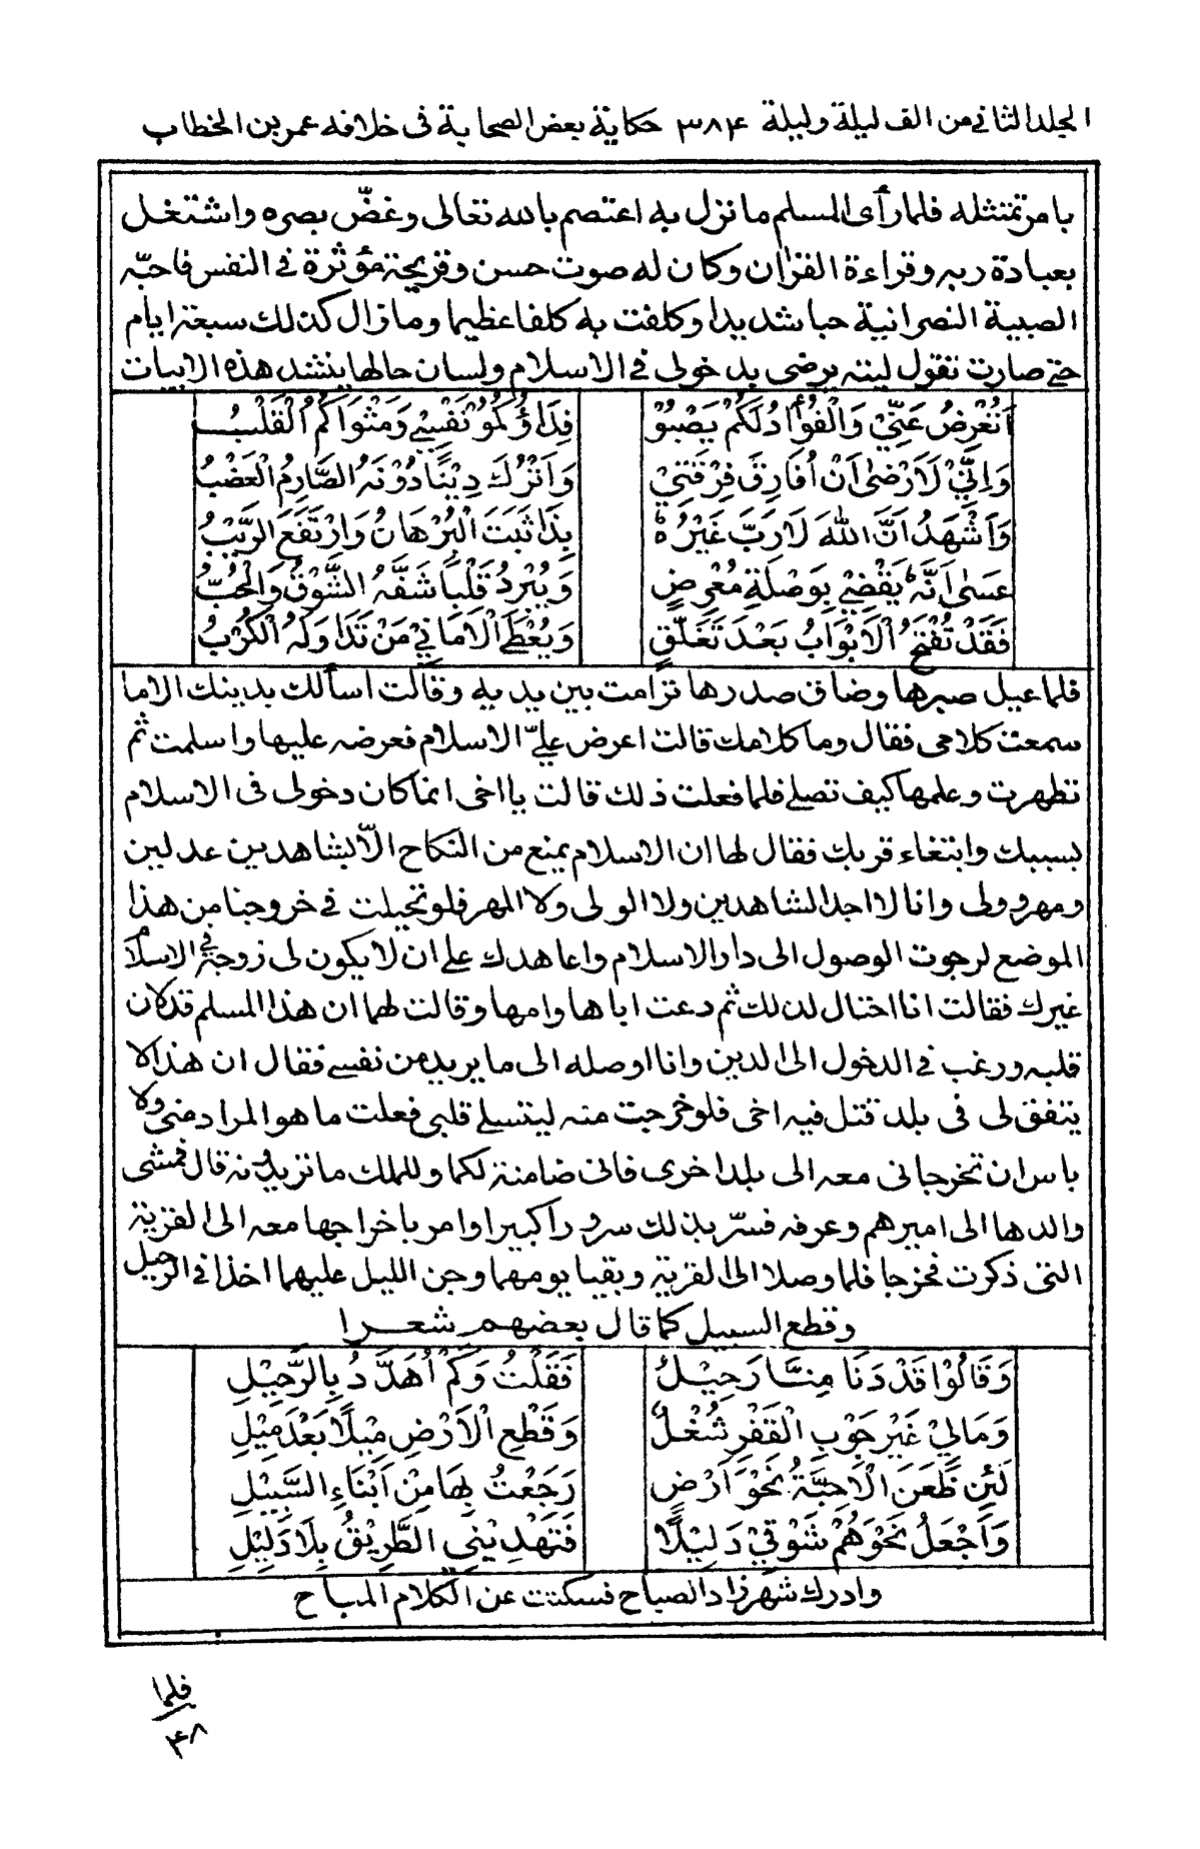 المجلد الثاني من الف ليلة وليلة ٣٨٤ حكاية بعض الصحابة في خلافه عمر بن الخطاب
بامر تمتثله فلما رأى المسلم ما نزل به اعتصم بالله تعالى وغضّ بصره واشتغل
بعبادة ربه وقراءة القرٰان وكان له صوت حسن وقريحة مؤثرة في النفس فاحبّه
الصبية النصرانية حبا شديدا وكلفت به كلفا عظيما وما زال كذلك سبعة ايام
حتى صارت تقول ليته يرضى بدخولي في الاسلام ولسان حالها ينشد هذه الابيات
اَتُعْرِضُ عَنِّيْ وَالْفُؤَادُ لَكُمْ يَصْبُوْ فِدَاؤُكُمُوْ نَفْسِيْ وَمَثْوَاكُمُ الْقَلْبُ
وَاِنِّيْ لَاَرْضٰى اَنْ اُفَارِقَ فِرْقَتِيْ وَاَتْرُكَ دِيْنًا دُوْنَهُ الصَّارِمُ الْعَضْبُ
وَاَشْهَدُ اَنَّ اللهَ لَا رَبَّ غَيْرُهٗ بِذَا ثَبَتَ الْبُرْهَانُ وَارْتَفَعَ الرَّيْبُ
عَسٰى اَنَّهٗ يَقْضِيْ بِوَصْلَةِ مُعْرِضٍ وَيُبْرِدُ قَلْبًا شَفَّهُ الشَّوْقُ وَالْحُبُّ
فَقَدْ تُفْتَحُ الْاَبْوَابُ بَعْدَ تَغَلُّقٍ وَيُعْطَى الْاَمَانِيْ مَنْ تَدَاوَلَهُ الْكَرْبُ
فلما عيل صبرها وضاق صدرها ترامت بين يديه وقالت اسألك بدينك الاما
سمعت كلامى فقال وما كلامك قالت اعرض عليّ الاسلام فعرضه عليها واسلمت ثم
تطهرت وعلمها كيف تصلي فلما فعلت ذلك قالت يا اخى انما كان دخولى فى الاسلام
بسببك وابتغاء قربك فقال لها ان الاسلام يمنع من النكاح الّا بشاهدين عدلين
ومهر وولى وانا لا اجد الشاهدين ولا الولى ولا المهر فلو تحيلت في خروجنا من هذا
الموضع لرجوت الوصول الى دار الاسلام واعاهدك على ان لا يكون لى زوجة في الاسلام
غيرك فقالت انا احتال لذلك ثم دعت اباها وامها وقالت لهما ان هذا المسلم قد لان
قلبه ورغب في الدخول الى الدين وانا اوصله الى ما يريد من نفسى فقال ان هذا لا
يتفق لى فى بلد قتل فيه اخى فلو خرجت منه ليتسلى قلبى فعلت ما هو المراد منى ولا
باس ان تخرجانى معه الى بلد اخرى فانى ضامنة لكما وللملك ما تريدونه قال فمشى
والدها الى اميرهم وعرفه فسرّ بذلك سرورا كبيرا وامر باخراجها معه الى القرية
التى ذكرت فخرجا فلما وصلا الى القرية وبقيا يومهما وجن الليل عليهما اخذا في الرحيل
وقطع السبيل كما قال بعضهم شعرا
وَقَالُوْا قَدْ دَنَا مِنَّا رَحِيْلٌ فَقُلْتُ وَكَمْ اُهَدَّدُ بِالرَّحِيْلِ
وَمَالِيْ غَيْرَ جَوْبِ الْقَفْرِ شُغْلٌ وَقَطْعِ الْاَرْضِ مِيْلًا بَعْدَ مِيْلِ
لَئِنْ ظَعَنَ الْاَحِبَّةُ نَحْوَ اَرْضٍ رَجَعْتُ بِهَا مِنْ اَبْنَاءِ السَّبِيْلِ
وَاَجْعَلُ نَحْوَهُمْ شَوْقِيْ دَلِيْلًا فَتَهْدِيْنِي الطَّرِيْقُ بِلَا دَلِيْلِ
وادرك شهرزاد الصباح فسكتت عن الكلام المباح
فلما
٤٨